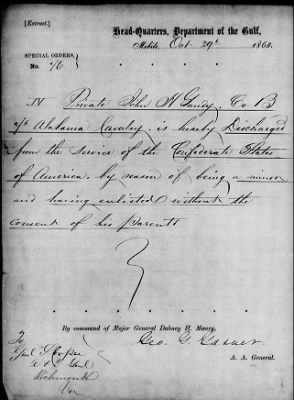 [Extract.]
Head-Quarters, Department of the Gulf,
Mobile, Oct 29th 1863.
SPECIAL ORDERS,
No. 76
IV Private John H Gandy, Co B
Alabama Cavalry is hereby Discharged
from the service of the Confederate States
of America, by reason of being a minor
and having enlisted without the
consent of his parents
By command of Major General Dabney H. Maury.
Geo. G. Garner
A. A. General.
To
Genl S Cooper
A & I Genl
Richmond
Va